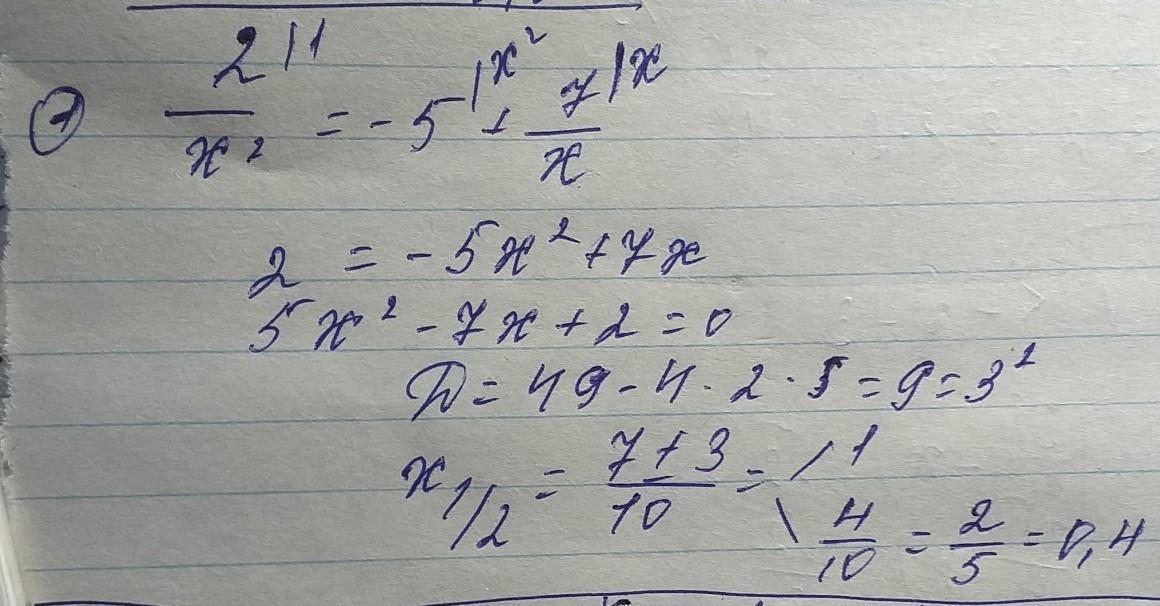 ⑦ 2|1/x² = -5|x² + 7|x/x
2 = -5x² + 7x
5x² - 7x + 2 = 0
D = 49 - 4 · 2 · 5 = 9 = 3²
x1/2 = 7±3/10 = / 1
\ 4/10 = 2/5 = 0,4